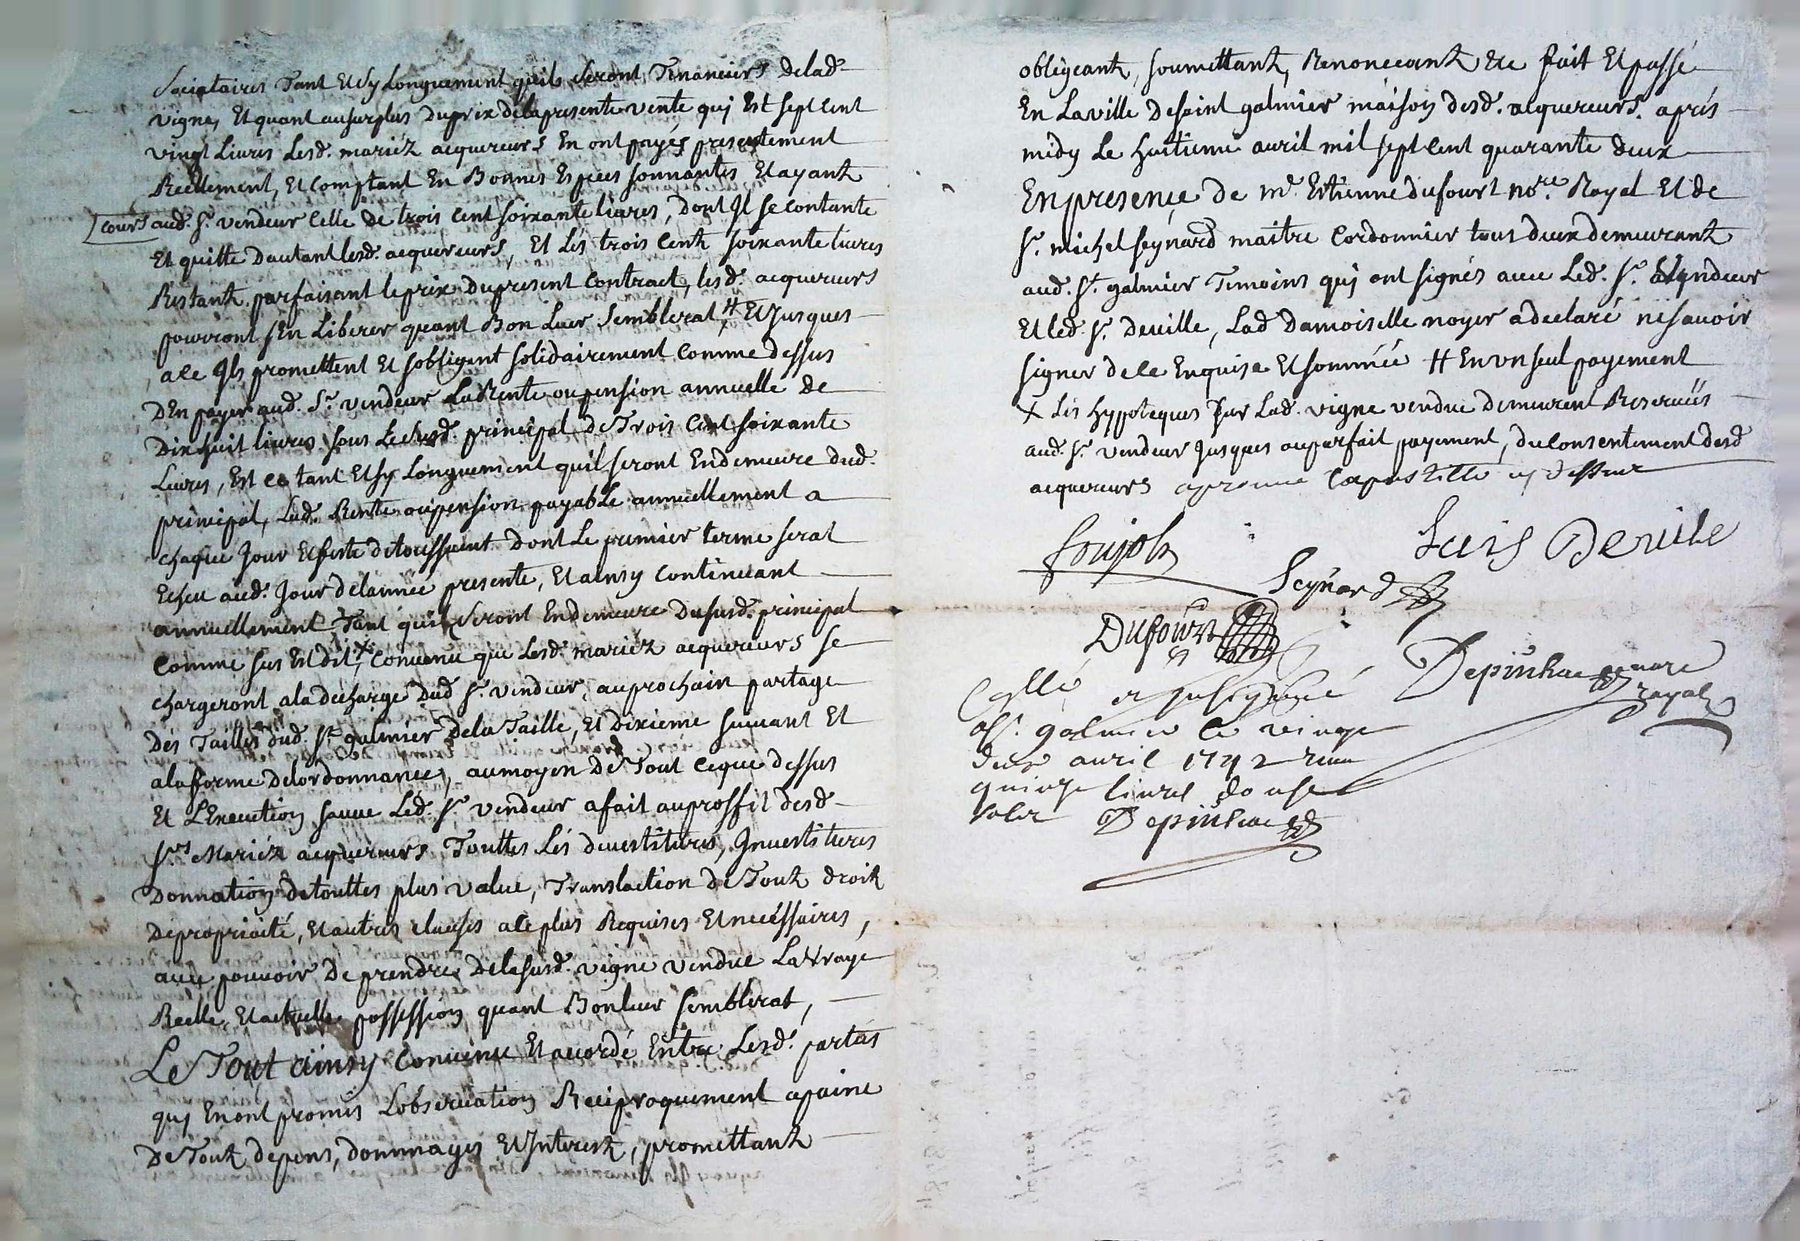 Sociataires Tant Et sy Longuement quils seront Tenanciers delad.
vigne, Et quant ausurplus duprix delapresente vente quj Est sept cent
vingt Livres Lesd. mariéz acquereurs En ont payés presentement
Reellement, Et comptant En Bonnes Espéces sonnantes Et ayant
cours aud. Sr. vendeur Celle de trois cent soixante livres, dont Jl se contante
Et quitte dautant lesd. acquereurs, Et Lés trois cent soixante livres
Restant parfaisant le prix dupresent Contract, lesd. acquereurs
pourront sEn Liberer quant Bon Luer Semblerat, H Et Jusques
ace Jls promettent Et sobligent solidairement Comme dessus
DEn payer aud. Sr. vendeur La Rente oupension annuelle de
Dixhuit livres sous Le susd. principal de Trois Cent soixante
Livres, Et ce tant Et sy Longuement quil seront Endemeure dud.
principal, Lad. Rente oupension payable annuellement a
chaque Jour Et feste detoussaint dont Le premier terme serat
Echeu aud. Jour delannée presente, Et ainsy Continuant
annuellement Tant quils seront Endemeure dususd. principal
Comme sus Est dit, X Convenu que Lesd. mariéz acquereurs se
chargeront ala decharge dud Sr. vendeur, auprochain partage
Dés Tailles dud. St. galmier Dela Taille, Et dixieme suivant Et
alaforme delordonnance, aumoyen de Tout ceque dessus
Et LExecution sauve Led. Sr. vendeur afait auproffit desd.
Srs. Mariéz acquereurs Touttes Lés devestitures, Jnvestitures
Donnation detouttes plus value, Translaction de Tout droit
depropriaité, Et autres clauses ace plus Requises Et necéssaires,
avec pouvoir De prendre delasusd. vigne vendue La vraye
Reelle, Et actuelle possession quant Bonluer semblerat,
Le Tout ainsy Convenu Et accordé Entre Lesd. parties
quj En ont promis Lobservation Reciproquement apaine
De Tout depens, dommages Et Jnterest, promettant
obligeant, soumettant, Renonceant Etc fait Et passé
En Laville desaint galmier maison desd. acquereurs. aprés
midy Le huitieme avril mil sept cent quarante deux
En presence de Me. Estienne dufourt nore. Royal Et de
Sr. michel seynard maitre Cordonnier tous deux demeurant
aud. St. galmier Temoins quj ont signés avec Led. Sr. vendeur
Et led. Sr. Deville, Lad Damoiselle noyer adeclaré nésavoir
signer dece Enquise Et sommée H En un seul payement
X Lés hypoteques sur Lad. vigne vendue demeurent Reservéés
aud. Sr. vendeur Jusques auparfait payement, du Consentement desd
acquereurs aprouvé Lapostille cy dessus
Louis Deville
Seynard
Dufourt
Depinhac nore
royal
Collé et
a St. galmier le vingt
deux avril 1742 recu
quinze livres douse
solz Depinhac